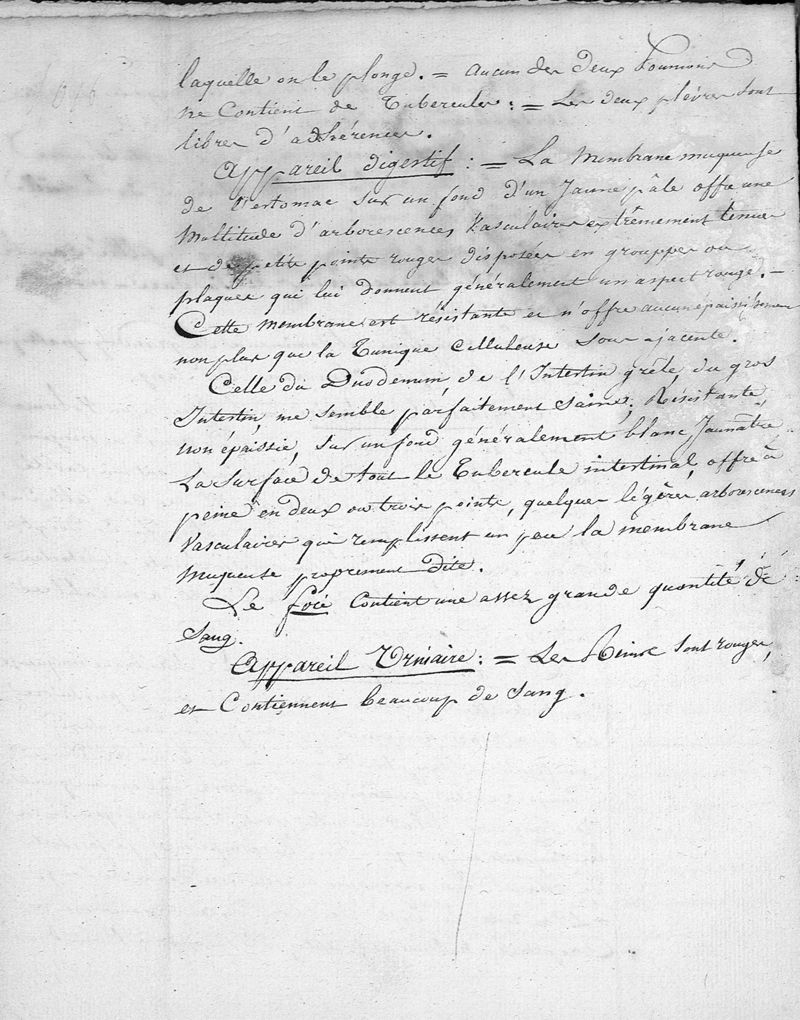 laquelle on le plonge. = aucun des deux Poumons
ne Contient de Tubercules : = Les deux plèvres sont
libres d'adhérences.
Appareil digestif : = La Membrane muqueuse
de l'estomac sur un fond d'un Jaune pâle offre une
Multitude d'arborescences Vasculaires extrêmement tenues
et de petits points rouges disposées en grouppes ou
plaques qui lui donnent généralement un aspect rouge. -
Cette membrane est résistante et n'offre aucun épaississement
non plus que la Tunique Celluleuse sous-ajacente.
Celle du Duodenum, de l'Intestin grêle, du gros
Intestin, me semble parfaitement saine ; Resistante,
non épaissie, sur un fond généralement blanc Jaunâtre
La surface de tout le Tubercule intestinal, offre à
peine en deux ou trois points, quelques légères arborescences
Vasculaires qui remplissent un peu la membrane
Muqueuse proprement dite.
Le foie Contient une assez grande quantité de
Sang.
Appareil Urinaire : = Les Reins sont rouges,
et Contiennent beaucoup de Sang.